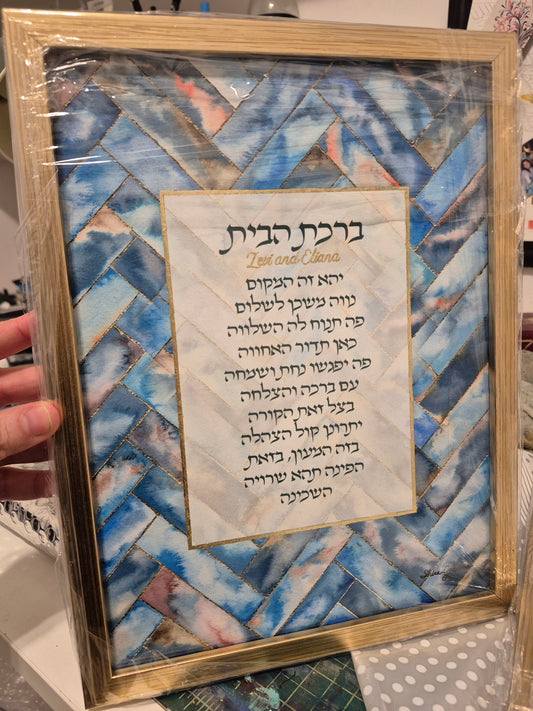 ברכת הבית
Levi and Eliana
יהא זה המקום
נווה משכן לשלום
פה תנוח לה השלווה
כאן תדור האחווה
פה יפגשו נחת ושמחה
עם ברכה והצלחה
בצל זאת הקורה
יתרונן קול הצהלה
בזה המעון, בזאת
הפינה תהא שרויה
השכינה